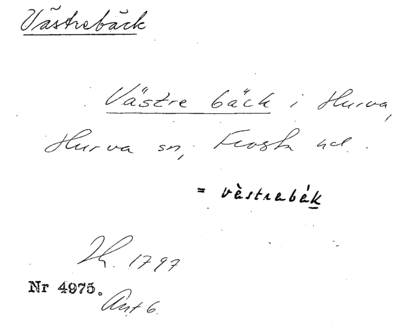 Västrebäck
Västre bäck i Hurva,
Hurva sn, Frosta hd.
= vèstrebék
Th. 1797
Nr 4975.
Ant 6.